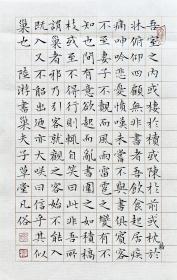 吾室之内或棲於櫝或陳於前或枕於
床俯仰四顧無非書者吾飲食起居疾
痛呻吟悲憂憤嘆未嘗不與書俱賓客
不至妻子不覿而風雨雷雹之變有不
知也間有意欲起而亂書圍之如積槁
枝或至不得行則輒自笑曰此非吾所
謂巢者邪引客就觀之客始不能入
既入又不能出乃亦大笑曰信乎其似
巢也 陸游書巢 夫子草堂凡俗